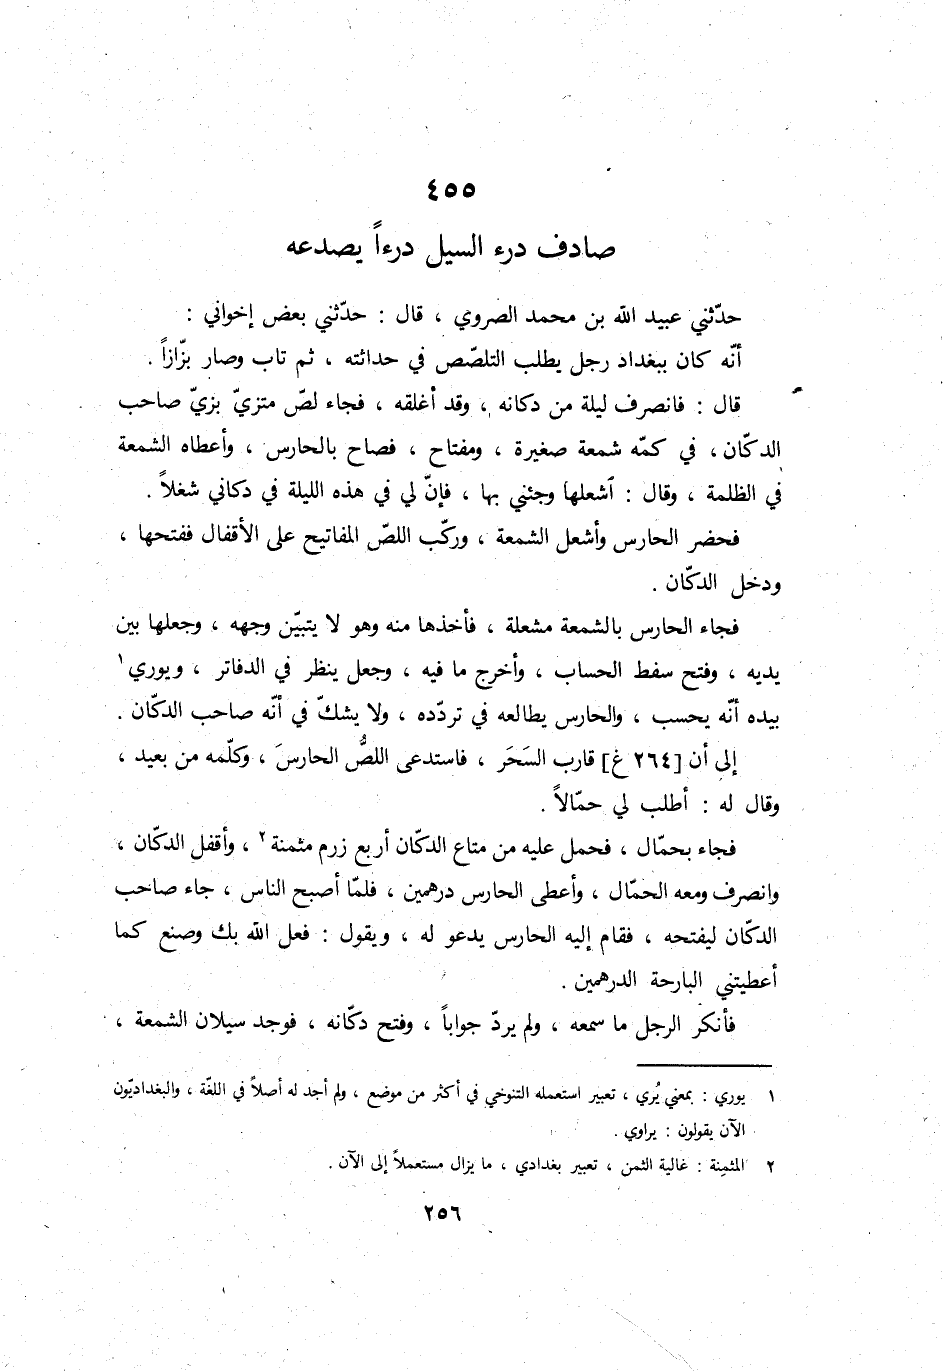 ٤٥٥
صادف درء السيل درءاً يصدعه
حدّثني عبيد الله بن محمد الصروي ، قال : حدّثني بعض إخواني :
أنّه كان ببغداد رجل يطلب التلصّص في حداثته ، ثم تاب وصار بزّازاً .
قال : فانصرف ليلة من دكانه ، وقد أغلقه ، فجاء لصّ متزيّ بزيّ صاحب
الدكّان ، في كمّه شمعة صغيرة ، ومفتاح ، فصاح بالحارس ، وأعطاه الشمعة
في الظلمة ، وقال : أشعلها وجئني بها ، فإنّ لي في هذه الليلة في دكاني شغلاً .
فحضر الحارس وأشعل الشمعة ، وركّب اللصّ المفاتيح على الأقفال ففتحها ،
ودخل الدكّان .
فجاء الحارس بالشمعة مشعلة ، فأخذها منه وهو لا يتبيّن وجهه ، وجعلها بين
يديه ، وفتح سفط الحساب ، وأخرج ما فيه ، وجعل ينظر في الدفاتر ، ويوري١
بيده أنّه يحسب ، والحارس يطالعه في تردّده ، ولا يشكّ في أنّه صاحب الدكّان .
إلى أن [٢٦٤ غ] قارب السَحَر ، فاستدعى اللصُّ الحارسَ ، وكلّمه من بعيد ،
وقال له : أطلب لي حمّالاً .
فجاء بحمّال ، فحمل عليه من متاع الدكّان أربع زرم مثمنة٢ ، وأقفل الدكّان ،
وانصرف ومعه الحمّال ، وأعطى الحارس درهمين ، فلمّا أصبح الناس ، جاء صاحب
الدكّان ليفتحه ، فقام إليه الحارس يدعو له ، ويقول : فعل الله بك وصنع كما
أعطيتني البارحة الدرهمين .
فأنكر الرجل ما سمعه ، ولم يردّ جواباً ، وفتح دكّانه ، فوجد سيلان الشمعة ،
١ يوري : بمعنى يُري ، تعبير استعمله التنوخي في أكثر من موضع ، ولم أجد له أصلاً في اللغّة ، والبغداديّون
الآن يقولون : يراوي .
٢ المثمِنة : غالية الثمن ، تعبير بغدادي ، ما يزال مستعملاً إلى الآن .
٢٥٦